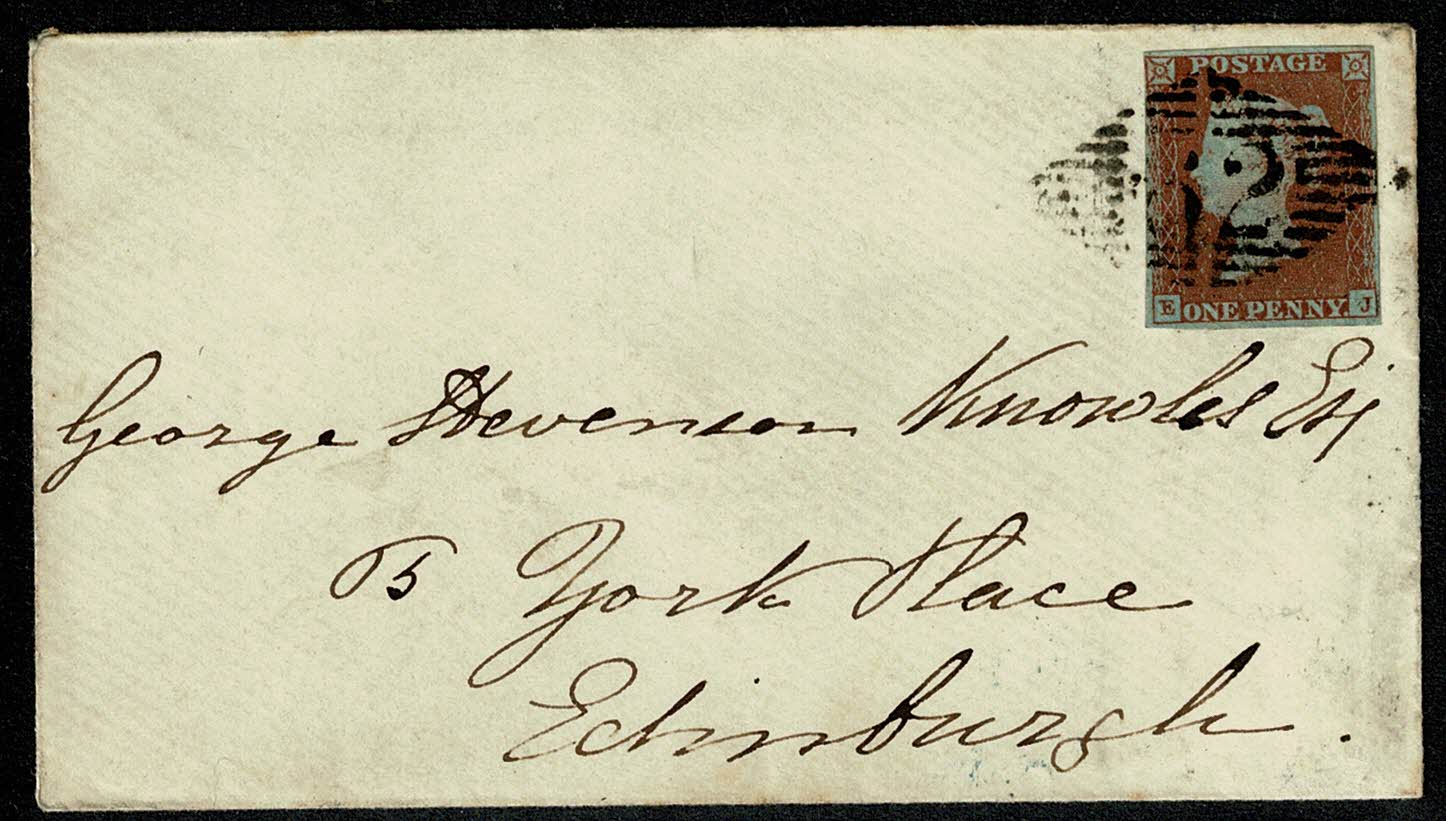 POSTAGE
2
E ONE PENNY. J
George Stevenson Knowles Esq
5 York Place
Edinburgh.